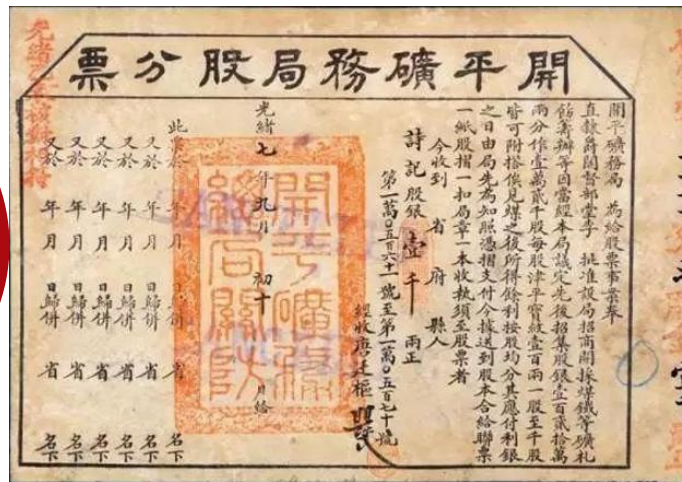 開平礦務局股分票
開平礦務局 為給股票事案奉
直隸爵閣督部堂李 批准設局招商開採煤鐵等礦札
飭籌辦等因當經本局議定先後招集股銀壹百貳拾萬
兩分作壹萬貳千股每股津平寶紋壹百兩一股至千股
皆可附搭俟見煤之後所得餘利按股均分其應付利銀
之日由局先為知照憑摺支付今據送到股本合給聯票
一紙股摺一扣局章一本收執須至股票者
今收到 省 府 縣人
詩記股銀壹千兩正
第一萬〇五百六十一號至第一萬〇五百七十號
經收唐廷樞
光緒七年九月初十日給
開平礦務總局關防
此票於 年 月 日歸併 省 名下
又於 年 月 日歸併 省 名下
又於 年 月 日歸併 省 名下
又於 年 月 日歸併 省 名下
又於 年 月 日歸併 省 名下
又於 年 月 日歸併 省 名下
光緒